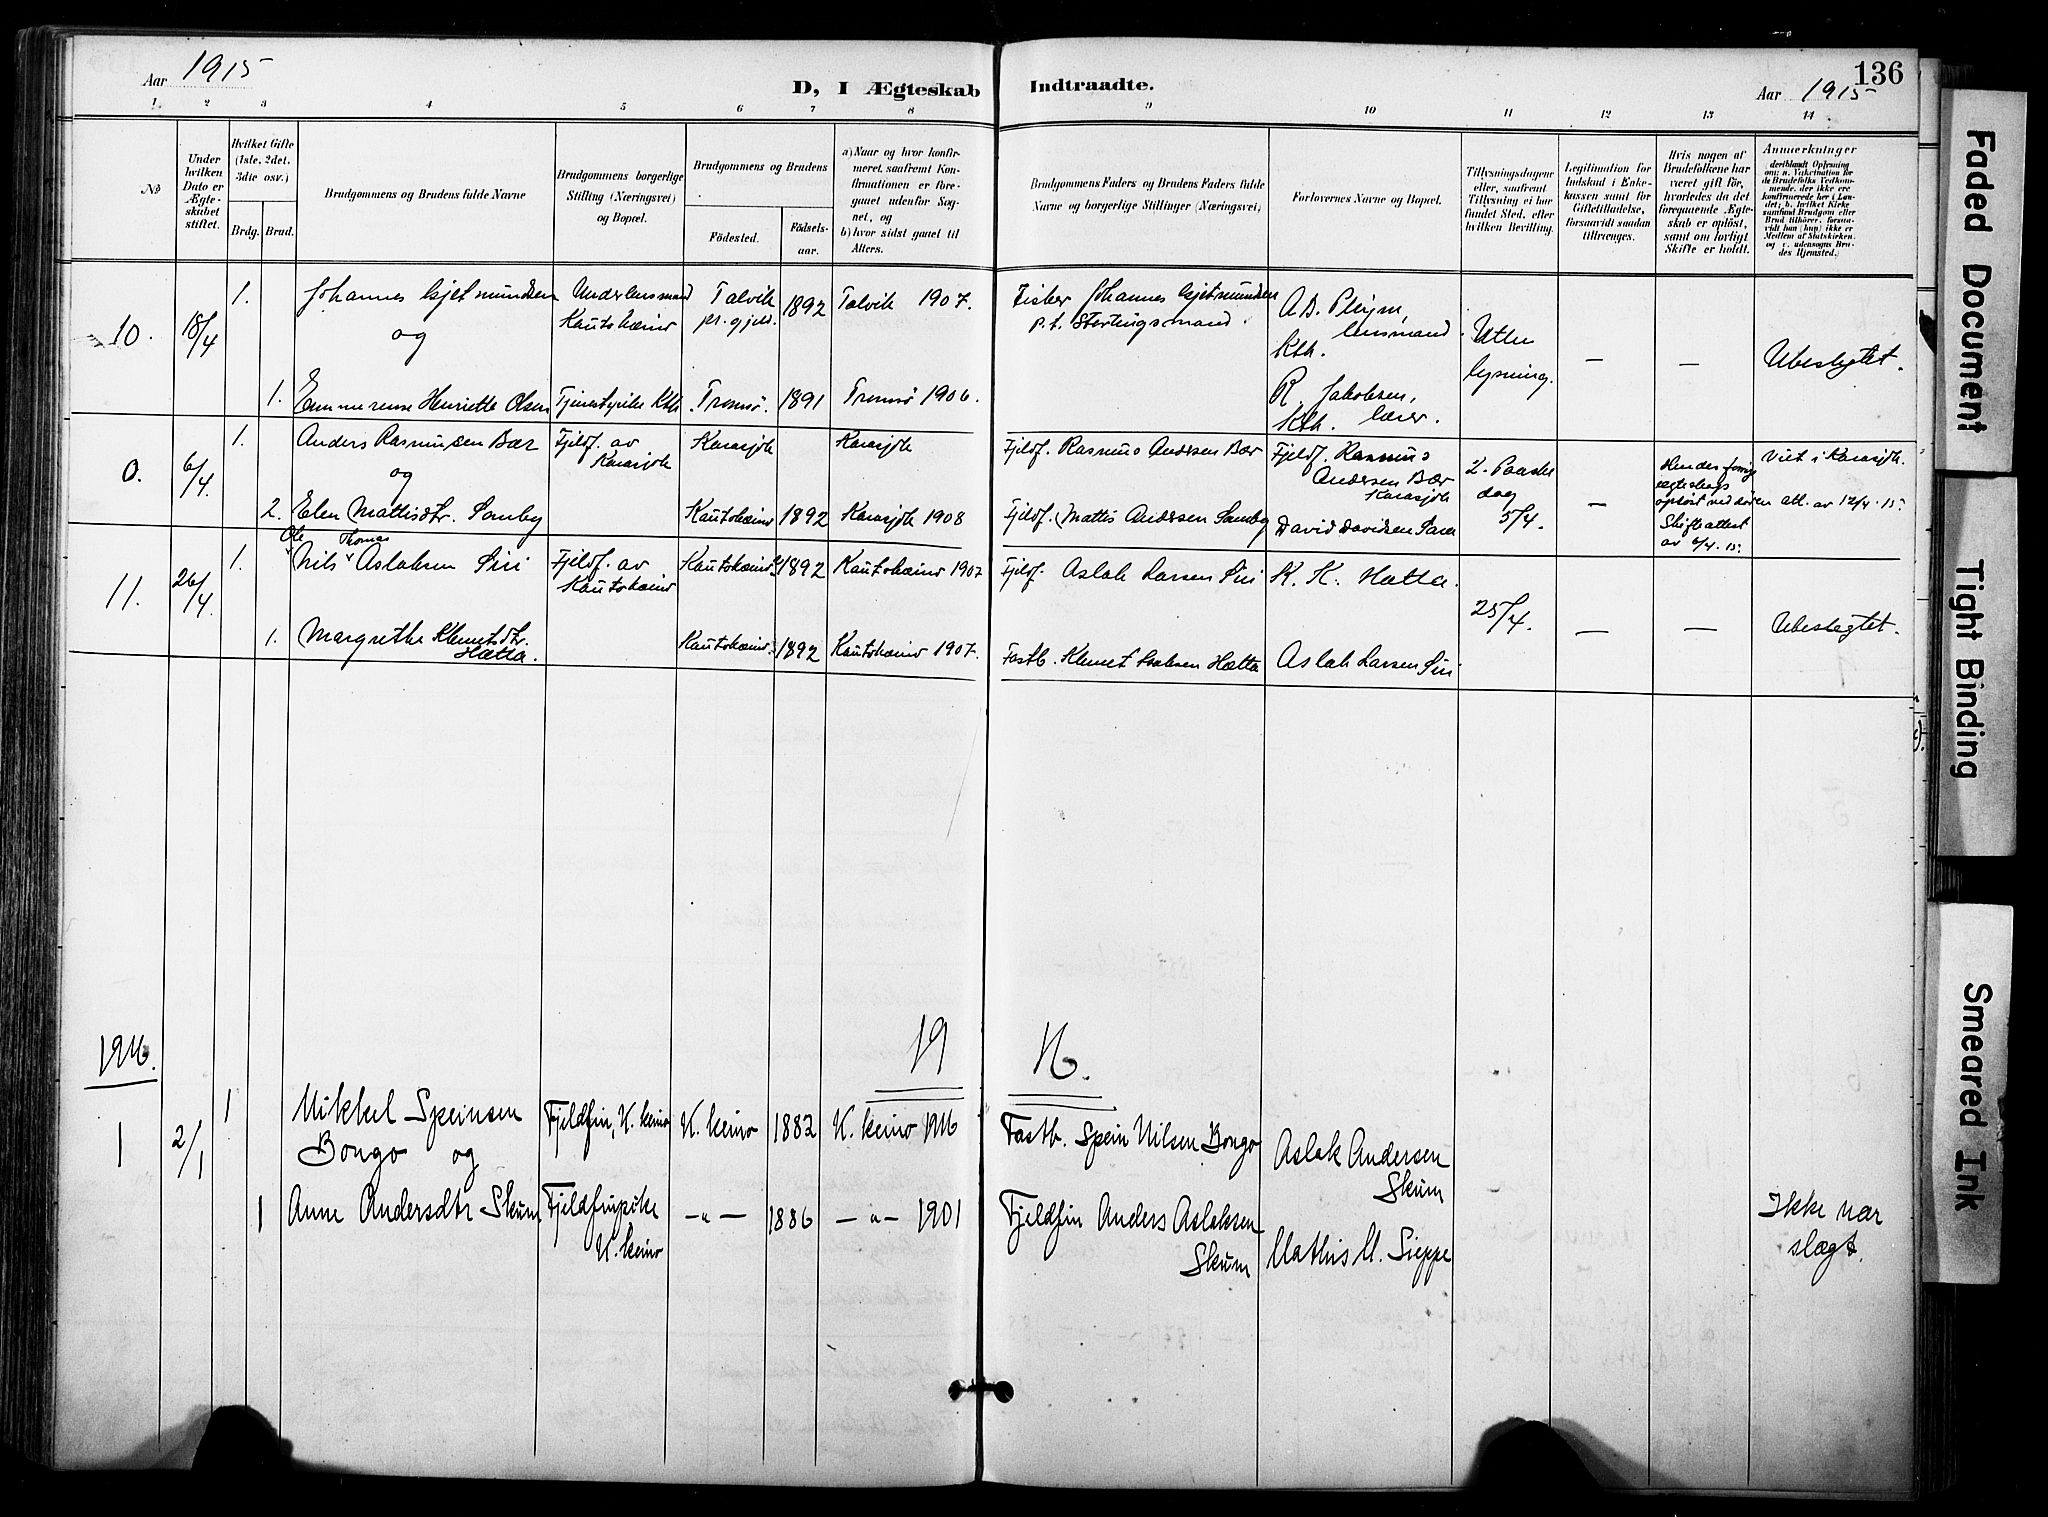 Aar 1915
D, I Ægteskab Indtraadte.
136
Aar 1915
1. 2 3 4 5 6 7 8 9 10 11 12 13 14
No
Under hvilken Dato er Ægteskabet stiftet.
Hvilket Gifte (1ste, 2det, 3die osv.)
Brdg. Brud.
Brudgommens og Brudens fulde Navne
Brudgommens borgerlige Stilling (Næringsvei) og Bopæl.
Brudgommens og Brudens
Fødested.
Fødselsaar.
a) Naar og hvor konfirmeret, saafremt Konfirmationen er foregaaet udenfor Sognet, og
b) hvor sidst gaaet til Alters.
Brudgommens Faders og Brudens Faders fulde Navne og borgerlige Stillinger (Næringsvei)
Forlovernes Navne og Bopæl.
Tillysningsdagene eller, saafremt Tillysning ei har fundet Sted, efter hvilken Bevilling.
Legitimation for Indskud i Enkekassen samt for Giftetilladelse, forsaavidt saadan tiltrænges.
Hvis nogen af Brudefolkene har været gift før, hvorledes da det foregaaende Ægteskab er opløst, samt om lovligt Skifte er holdt.
Anmærkninger
(deriblandt Oplysning om: a. Vaksination for de Brudefolks Vedkommende, der ikke ere konfirmerede her i Landet; b. hvilket Kirkesamfund Brudgom eller Brud tilhører, forsaavidt han (hun) ikke er Medlem af Statskirken, og c. udensogns Brudes Hjemsted.)
10. 18/4 1. Johannes Kjetmundsen Underlensmand Talvik 1892 Talvik 1907. Fisker Johannes Kjetmundsen A.B. Pleym,
og Kautokeino pr.gjeld. p.t. Stortingsmand. lensmand Kth. Utlnlysning. — — Ubeslegtet.
1. Emmerense Henriette Olsen Tjenestpike Kth Tromsø. 1891 Tromsø 1906. R. Jakobsen,
Kth. lærer.
0. 6/4. 1. Anders Rasmussen Bær Fjeldf. av Karasjok Karasjok Karasjok Fjeldf. Rasmus Andersen Bær Fjeldf. Rasmus Andersen Bær Karasjok 2. Paaskedag 5/4. — Hendes forrige egteskap opløst ved døden Skifteattest av 6/4. 15. Viet i Karasjok. att. av 12/4. 15.
og
2. Elen Mattisdtr. Somby Kautokeino 1892 Karasjok 1908 Fjeldf. Mattis Andersen Somby David Davidsen Sara
11. 26/4. 1. Ole Nils Thomas Aslaksen Siri Fjeldf. av Kautokeino Kautokeino 1892 Kautokeino 1907 Fjeldf. Aslak Larsen Siri K. K. Hætta. 25/4. — — Ubeslegtet.
1. Margrethe Klemetsdtr. Hætta. Kautokeino. 1892 Kautokeino 1907. Fastb. Klemet Isaksen Hætta Aslak Larsen Siri
1916. 19 16.
1 2/1 1 Mikkel Speinsen Bongo og Fjeldfin, K. keino K. keino 1882 K. keino 1916 Fastb. Spein Nilsen Bongo Aslak Andersen Skum
1 Anne Andersdtr Skum Fjeldfinpike K. keino —"— 1886 —"— 1901 Fjeldfin Anders Aslaksen Skum Mathis M. Sieppe Ikke nær slægt.
Faded Document
Tight Binding
Smeared Ink